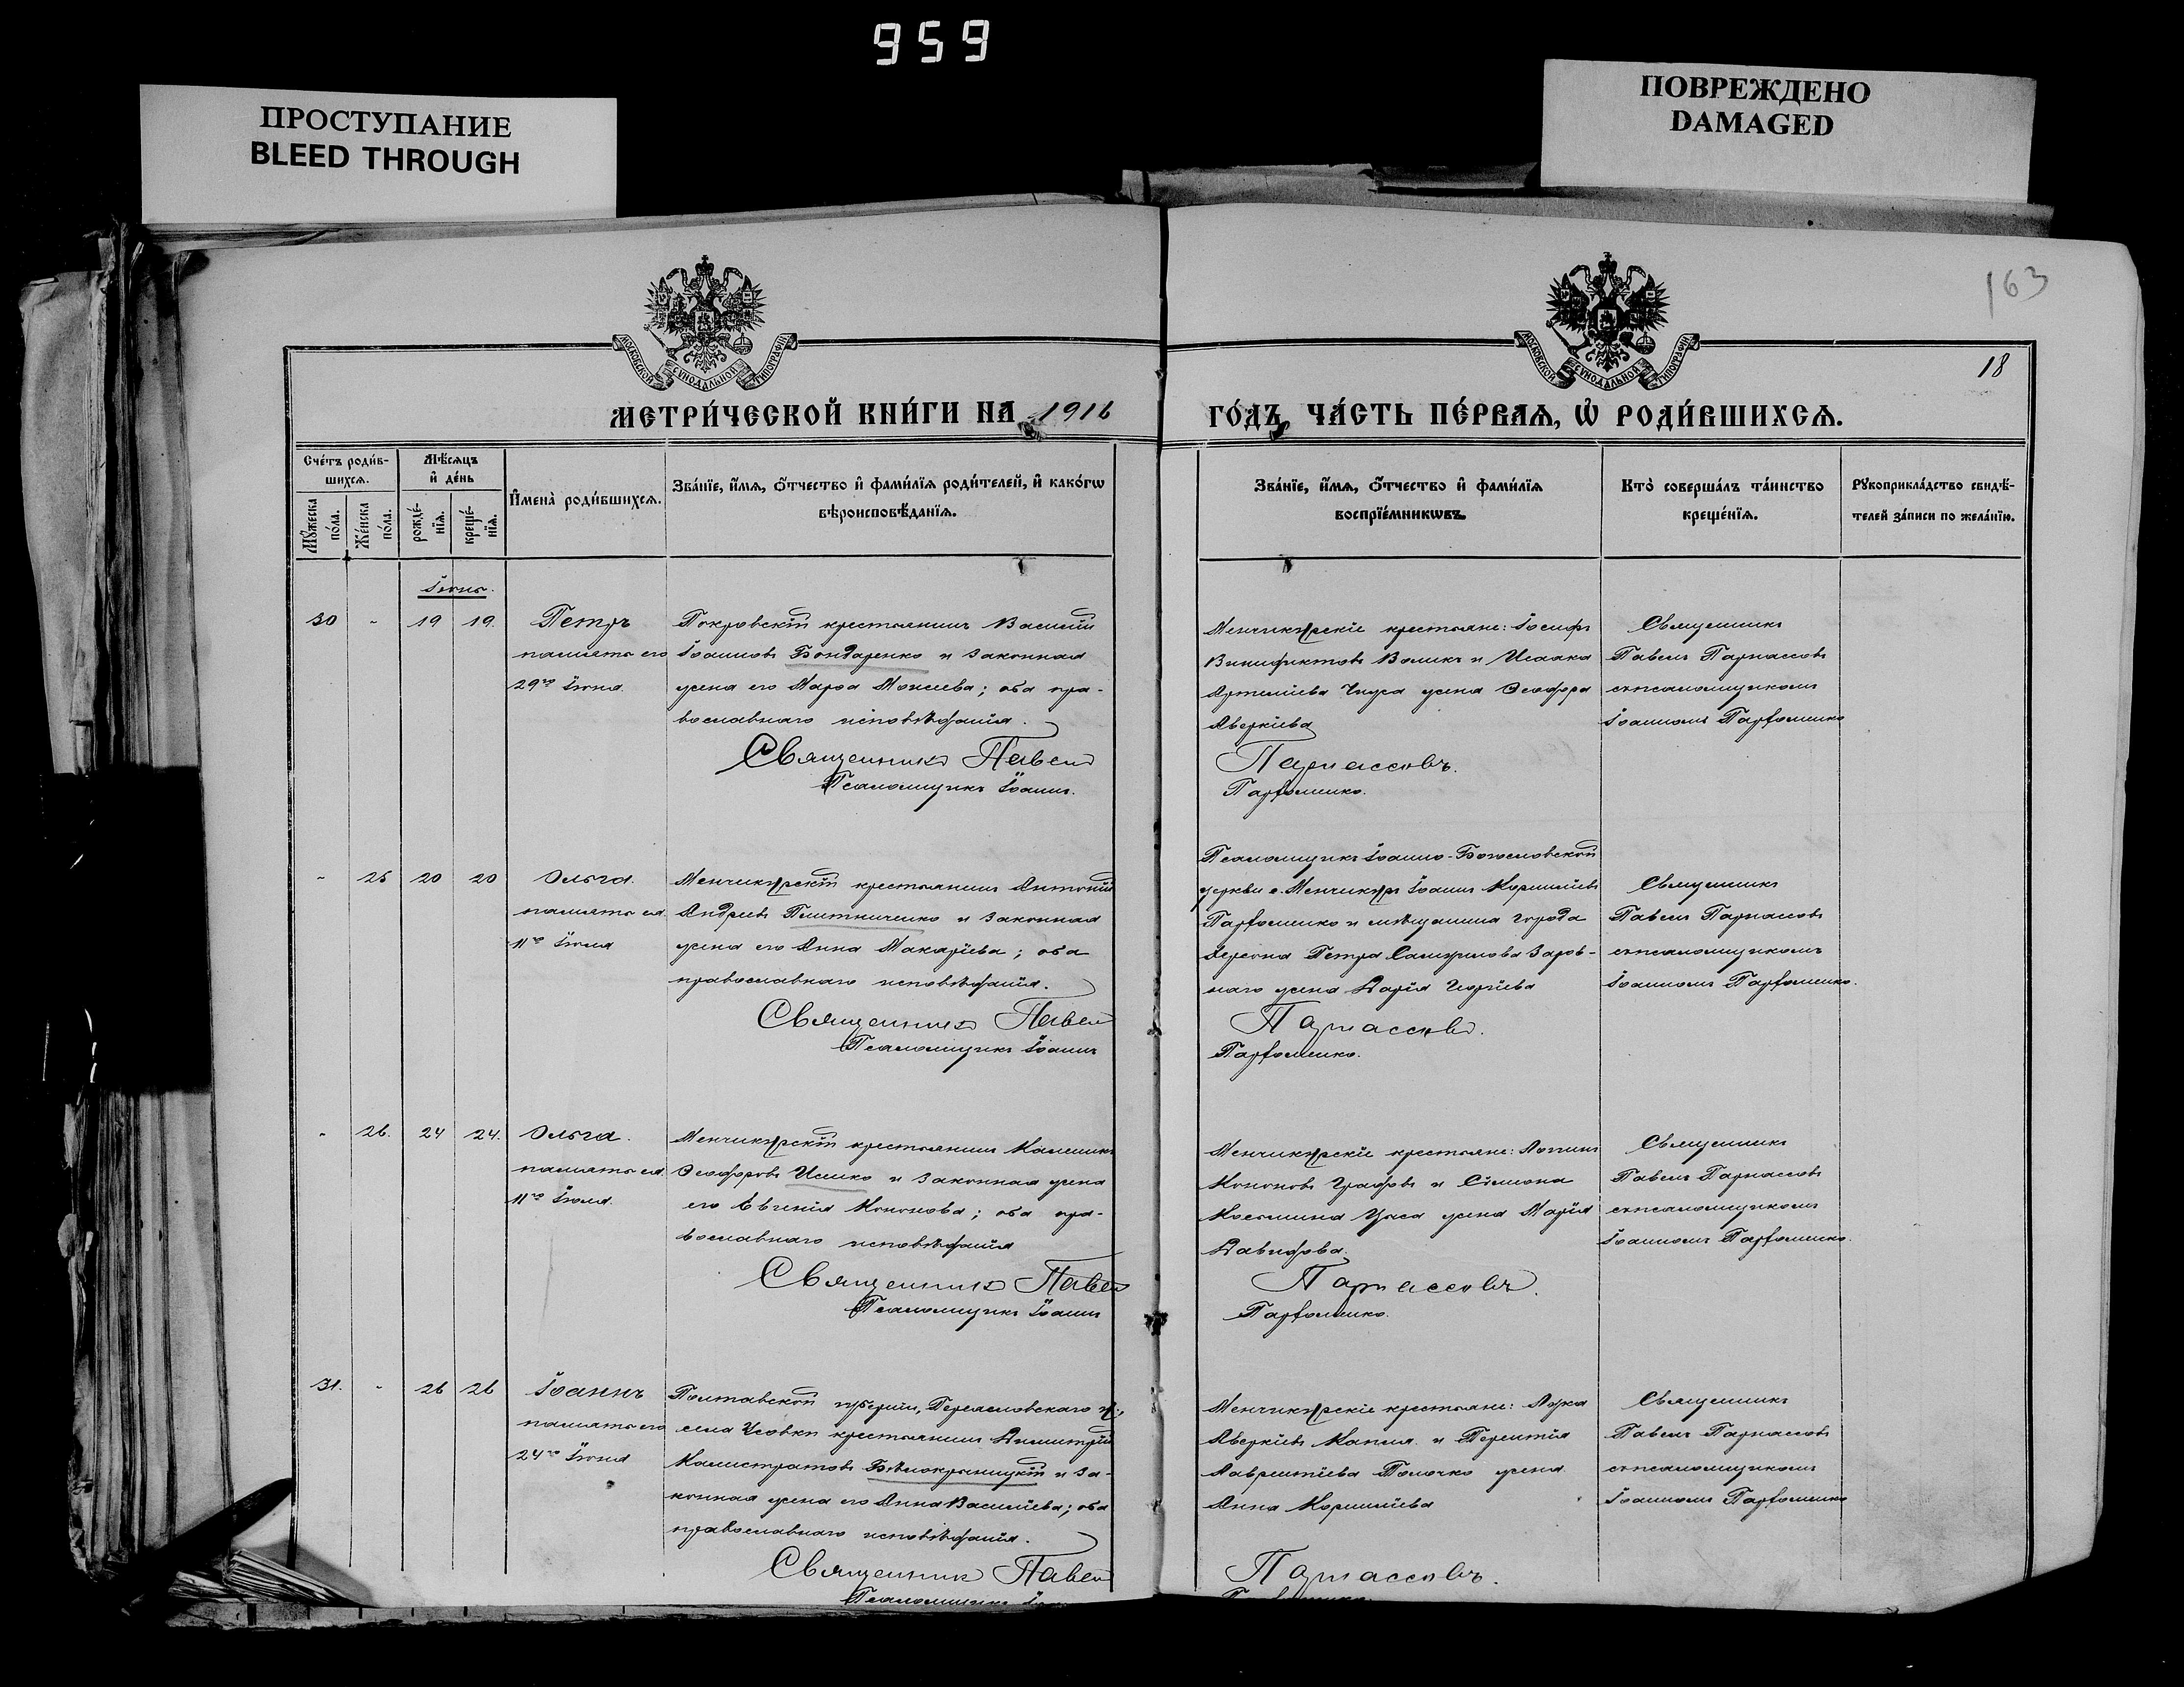 959
ПРОСТУПАНИЕ
BLEED THROUGH
ПОВРЕЖДЕНО
DAMAGED
163
18
МОСКОВСКОЙ СѴНОДАЛЬНОЙ ТИПОГРАФІИ
МОСКОВСКОЙ СѴНОДАЛЬНОЙ ТИПОГРАФІИ
МЕТРИ́ЧЕСКОЙ КНИ́ГИ НА 1916
ГО́ДЪ, ЧА́СТЬ ПЕ́РВАѦ, Ѡ҆ РОДИ́ВШИХСѦ.
Сче́тъ роди́в-
шихсѧ.
Мꙋ́жеска по́ла.
Же́нска по́ла.
Мѣ́сѧцъ
и҆ де́нь
рожде́-
нїѧ.
креще́-
нїѧ.
И҆мена̀ роди́вшихсѧ.
Зва́нїе, и҆́мѧ, ѻ҆́тчество и҆ фами́лїѧ роди́телей, и҆ како́гѡ
вѣроисповѣ́данїѧ.
Зва́нїе, и҆́мѧ, ѻ҆́тчество и҆ фами́лїѧ
воспрїе́мникѡвъ.
Кто̀ соверша́лъ та́инство
креще́нїѧ.
Рꙋкоприкла́дство свидѣ́-
телей за́писи по жела́нїю.
Іюнь.
30 - 19 19. Петръ
память его
29го Іюня.
Покровскій крестьянинъ Василій
Іоанновъ Бондаренко и законная
жена его Марѳа Моисеева; оба пра-
вославнаго исповѣданія.
Священникъ Павелъ
Псаломщикъ Іоаннъ.
Менчикурскіе крестьяне: Іосифъ
Воликъ и Исаака
Артеміева жена Ѳеодора
Аверкіева
Парнассовъ.
Парфоменко.
Священникъ
Павелъ Парнассовъ
съ псаломщикомъ
Іоанномъ Парфоменко
- 25 20 20 Ольга.
память ея.
11го Іюля
Менчикурскій крестьянинъ Антоній
Андреевъ Плитниченко и законная
жена его Анна Макаріева; оба
православнаго исповѣданія.
Священникъ Павелъ
Псаломщикъ Іоаннъ
Псаломщикъ Іоанно-Богословской
церкви с. Менчикуръ Іоаннъ Корниліевъ
Парфоменко и мѣщанина города
Херсона Петра Самуилова Заров-
наго жена Дарія
Парнассовъ.
Парфоменко.
Священникъ
Павелъ Парнассовъ
съ псаломщикомъ
Іоанномъ Парфоменко.
- 26. 24 24. Ольга.
память ея.
11го Іюля.
Менчикурскій крестьянинъ Каленикъ
Ѳеодоровъ Исико и законная жена
его Евгенія Кононова; оба пра-
вославнаго исповѣданія
Священникъ Павелъ
Псаломщикъ Іоаннъ
Менчикурскіе крестьяне: Логинъ
Кононовъ Графовъ и Симона
Косьмина жена Марія
Давидова.
Парнассовъ.
Парфоменко.
Священникъ
Павелъ Парнассовъ
съ псаломщикомъ
Іоанномъ Парфоменко.
31. - 26 26 Іоаннъ
память его
24го Іюня
Полтавской губерніи, Переяславскаго у.,
села Усовки крестьянинъ Димитрій
Калистратовъ Бѣлокриницкій и за-
конная жена его Анна Василіева; оба
православнаго исповѣданія.
Священникъ Павелъ
Псаломщикъ
Менчикурскіе крестьяне: Лука
Аверкіевъ Капля и Терентія
Лаврентіева Толочко жена
Анна Корниліева
Парнассовъ.
Священникъ
Павелъ Парнассовъ
съ псаломщикомъ
Іоанномъ Парфоменко